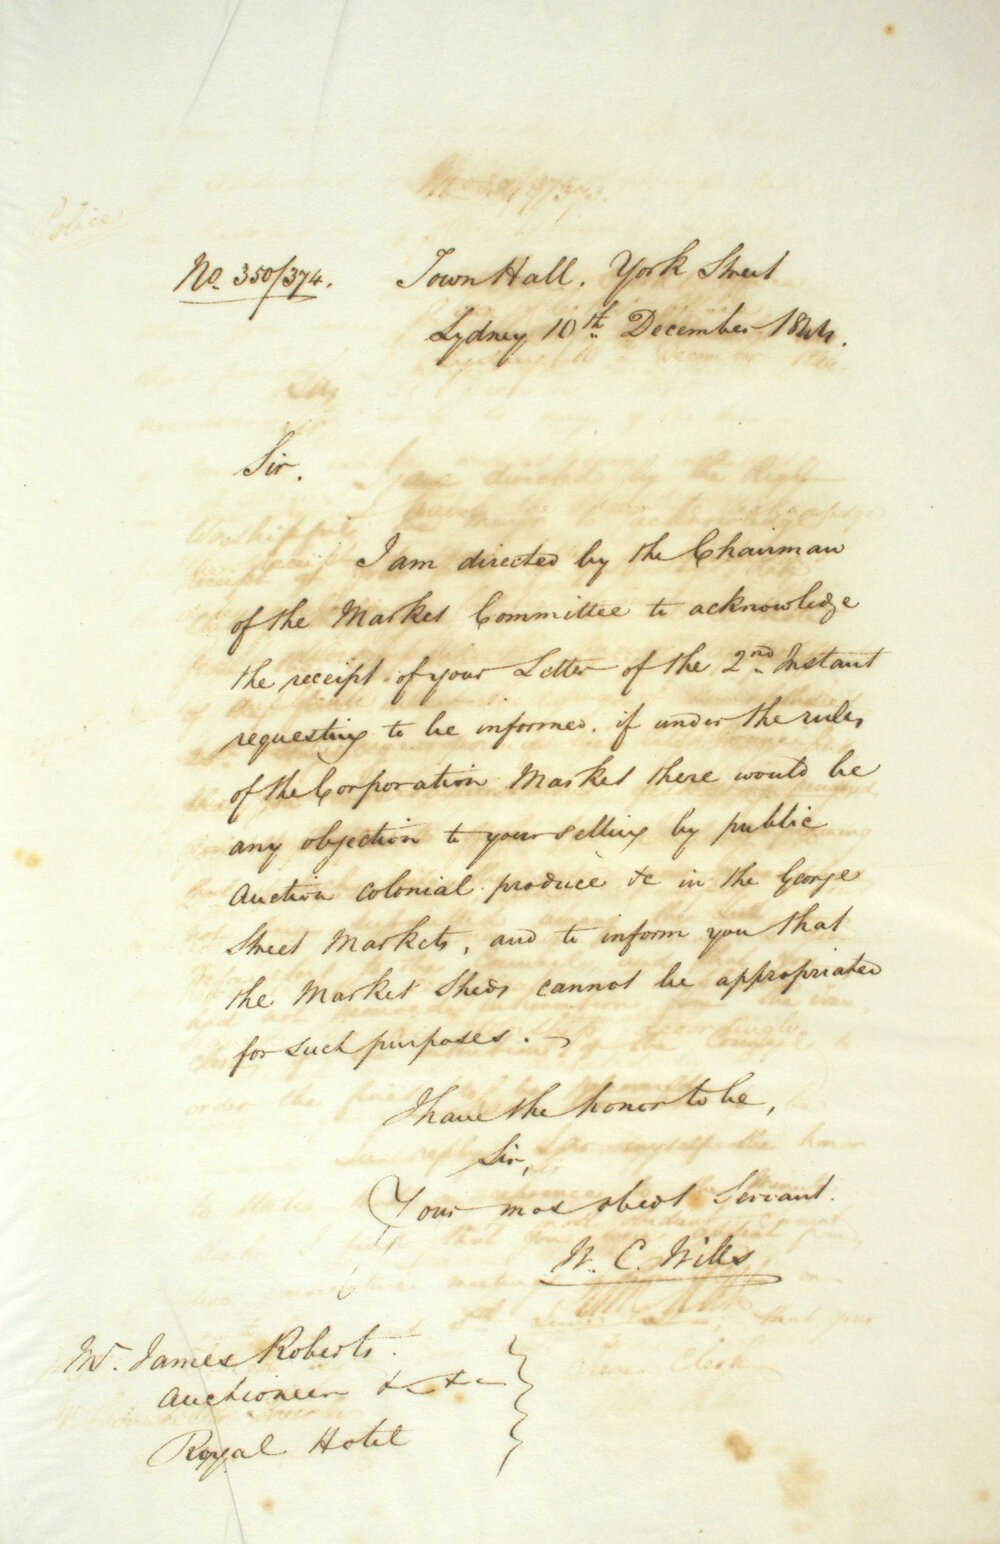 No. 350/374.
Town Hall. York Street
Sydney 10th December 1844.
Sir.
I am directed by the Chairman
of the Market Committee to acknowledge
the receipt of your Letter of the 2nd Instant
requesting to be informed. if under the rules
of the Corporation Market there would be
any objection to your selling by public
Auction colonial produce &c in the George
Street Markets, and to inform you that
the Market Sheds cannot be appropriated
for such purposes.
I have the honor to be,
Sir,
Your mos obedt Servant.
W. C. Wills
Mr. James Roberts.
Auctioneer &c &c
Royal Hotel